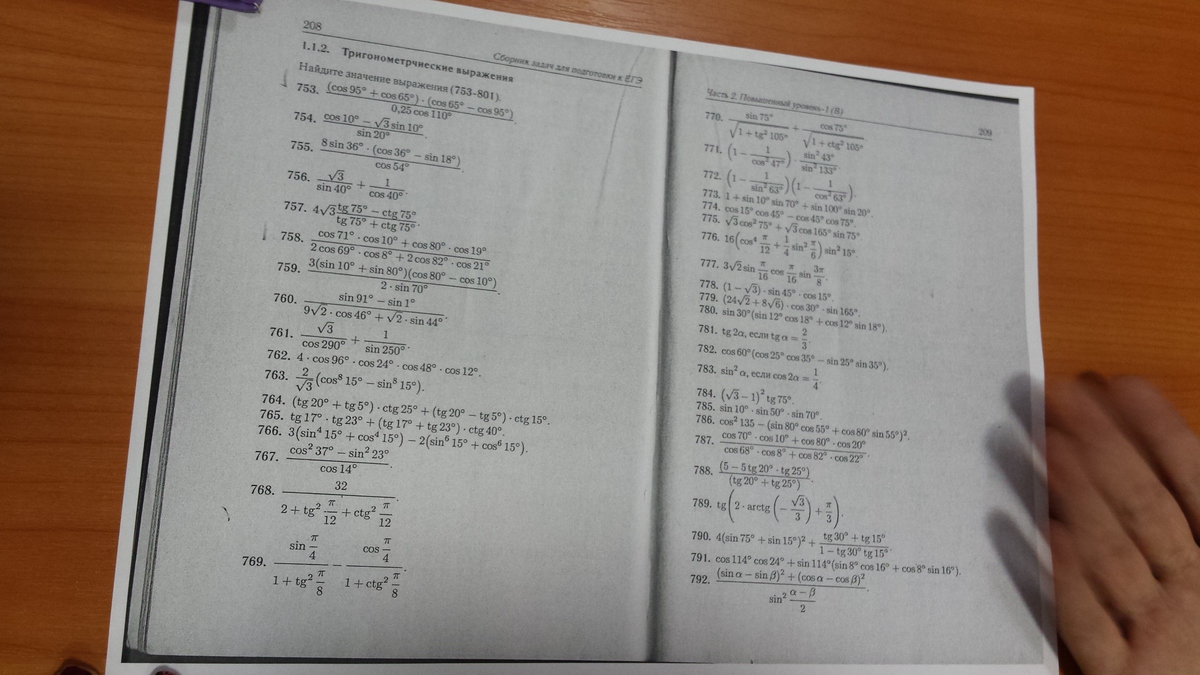 208
Сборник задач для подготовки к ЕГЭ
1.1.2. Тригонометрчиеские выражения
Найдите значение выражения (753–801).
753. \frac{(cos 95° + cos 65°) · (cos 65° − cos 95°)}{0,25 cos 110°}.
754. \frac{cos 10° − √3 sin 10°}{sin 20°}.
755. \frac{8 sin 36° · (cos 36° − sin 18°)}{cos 54°}.
756. \frac{√3}{sin 40°} + \frac{1}{cos 40°}.
757. 4√3 \frac{tg 75° − ctg 75°}{tg 75° + ctg 75°}.
758. \frac{cos 71° · cos 10° + cos 80° · cos 19°}{2 cos 69° · cos 8° + 2 cos 82° · cos 21°}.
759. \frac{3(sin 10° + sin 80°)(cos 80° − cos 10°)}{2 · sin 70°}.
760. \frac{sin 91° − sin 1°}{9√2 · cos 46° + √2 · sin 44°}.
761. \frac{√3}{cos 290°} + \frac{1}{sin 250°}.
762. 4 · cos 96° · cos 24° · cos 48° · cos 12°.
763. \frac{2}{√3}(cos⁸ 15° − sin⁸ 15°).
764. (tg 20° + tg 5°) · ctg 25° + (tg 20° − tg 5°) · ctg 15°.
765. tg 17° · tg 23° + (tg 17° + tg 23°) · ctg 40°.
766. 3(sin⁴ 15° + cos⁴ 15°) − 2(sin⁶ 15° + cos⁶ 15°).
767. \frac{cos² 37° − sin² 23°}{cos 14°}.
768. \frac{32}{2 + tg² \frac{π}{12} + ctg² \frac{π}{12}}.
769. \frac{sin \frac{π}{4}}{1 + tg² \frac{π}{8}} − \frac{cos \frac{π}{4}}{1 + ctg² \frac{π}{8}}.
Часть 2. Повышенный уровень–1 (В)
209
770. \frac{sin 75°}{√(1 + tg² 105°)} + \frac{cos 75°}{√(1 + ctg² 105°)}.
771. (1 − \frac{1}{cos² 47°}) · \frac{sin² 43°}{sin² 133°}.
772. (1 − \frac{1}{sin² 63°})(1 − \frac{1}{cos² 63°}).
773. 1 + sin 10° sin 70° + sin 100° sin 20°.
774. cos 15° cos 45° − cos 45° cos 75°.
775. √3 cos² 75° + √3 cos 165° sin 75°
776. 16(cos⁴ \frac{π}{12} + \frac{1}{4} sin² \frac{π}{6}) sin² 15°.
777. 3√2 sin \frac{π}{16} cos \frac{π}{16} sin \frac{3π}{8}.
778. (1 − √3) · sin 45° · cos 15°.
779. (24√2 + 8√6) · cos 30° · sin 165°.
780. sin 30°(sin 12° cos 18° + cos 12° sin 18°).
781. tg 2α, если tg α = \frac{2}{3}.
782. cos 60°(cos 25° cos 35° − sin 25° sin 35°).
783. sin² α, если cos 2α = \frac{1}{4}.
784. (√3 − 1)² tg 75°.
785. sin 10° · sin 50° · sin 70°.
786. cos² 135 − (sin 80° cos 55° + cos 80° sin 55°)².
787. \frac{cos 70° · cos 10° + cos 80° · cos 20°}{cos 68° · cos 8° + cos 82° · cos 22°}.
788. \frac{(5 − 5 tg 20° · tg 25°)}{(tg 20° + tg 25°)}.
789. tg(2 · arctg(−\frac{√3}{3}) + \frac{π}{3}).
790. 4(sin 75° + sin 15°)² + \frac{tg 30° + tg 15°}{1 − tg 30° tg 15°}.
791. cos 114° cos 24° + sin 114°(sin 8° cos 16° + cos 8° sin 16°).
792. \frac{(sin α − sin β)² + (cos α − cos β)²}{sin² \frac{α − β}{2}}.